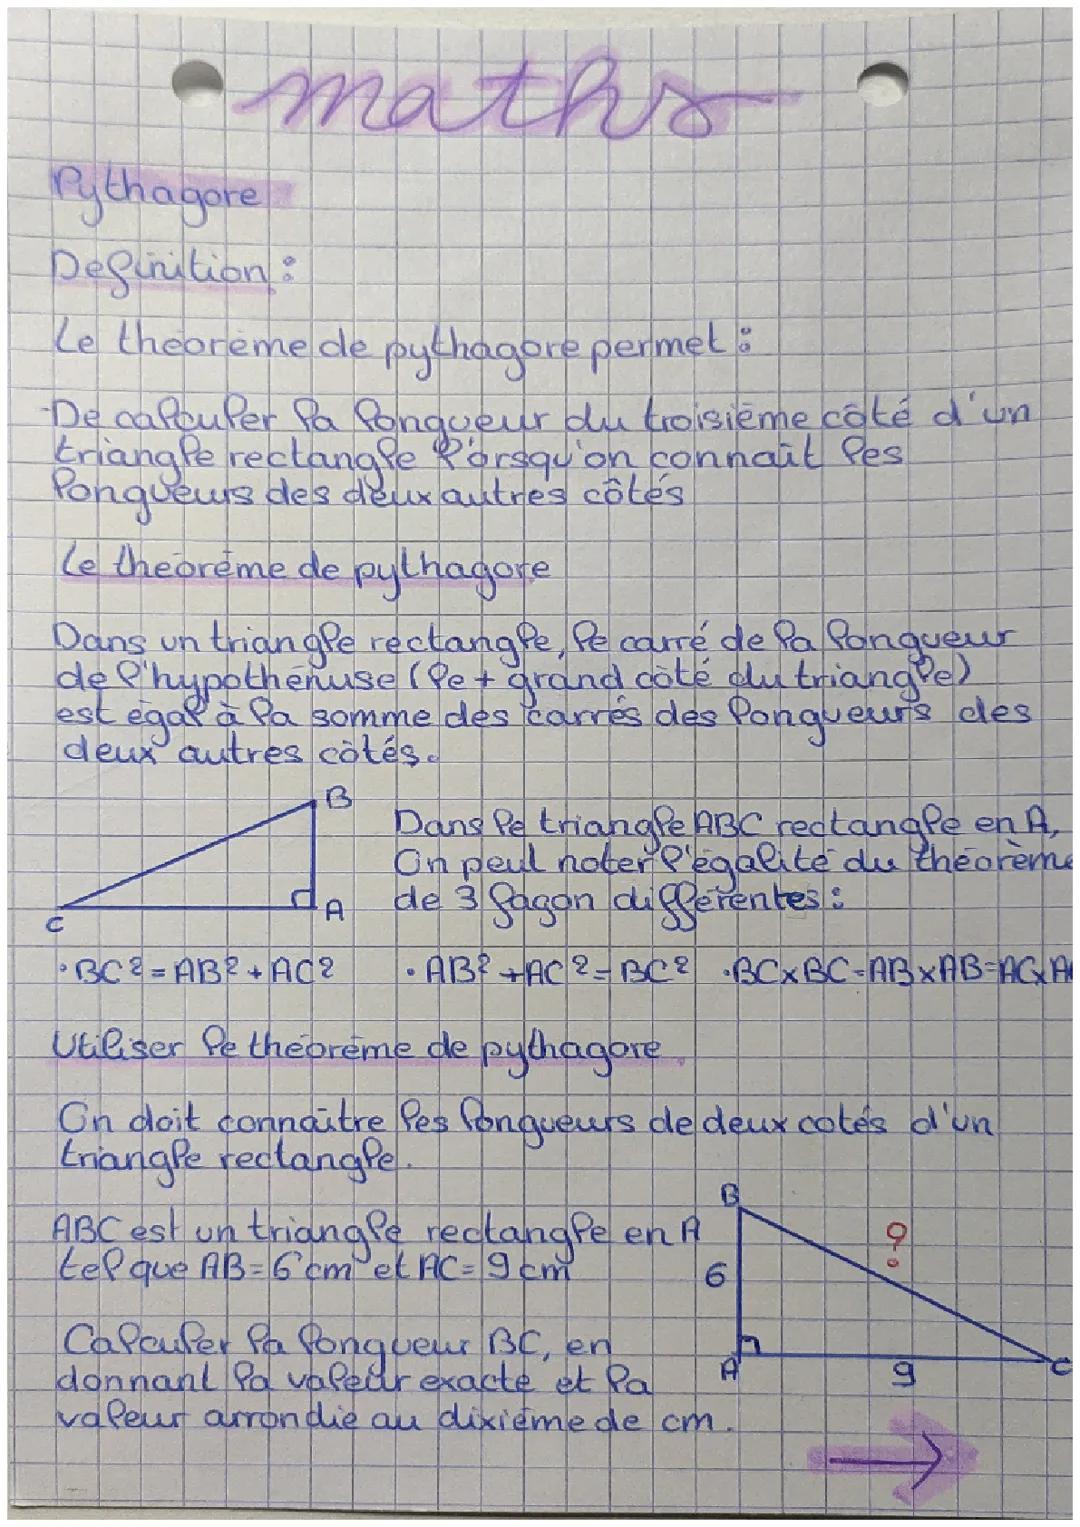 maths
Pythagore
Definition :
Le théorème de pythagore permet :
-De calculer la longueur du troisième côté d'un
triangle rectangle l'orsqu'on connait les
longueurs des deux autres côtés
Le theorème de pythagore
Dans un triangle rectangle, le carré de la longueur
de l'hypothénuse (le + grand côté du triangle)
est égal à la somme des carrés des longueurs des
deux autres côtés.
B
Dans le triangle ABC rectangle en A,
On peut noter l'égalité du théorème
de 3 façon différentes :
C
A
• BC² = AB² + AC² • AB² + AC² = BC² • BC×BC=AB×AB=AC×A
Utiliser le théorème de pythagore
On doit connaître les longueurs de deux cotés d'un
triangle rectangle.
B
ABC est un triangle rectangle en A
?
tel que AB = 6 cm et AC = 9 cm
6
Calculer la longueur BC, en
donnant la valeur exacte et la
A
9
C
valeur arrondie au dixième de cm.